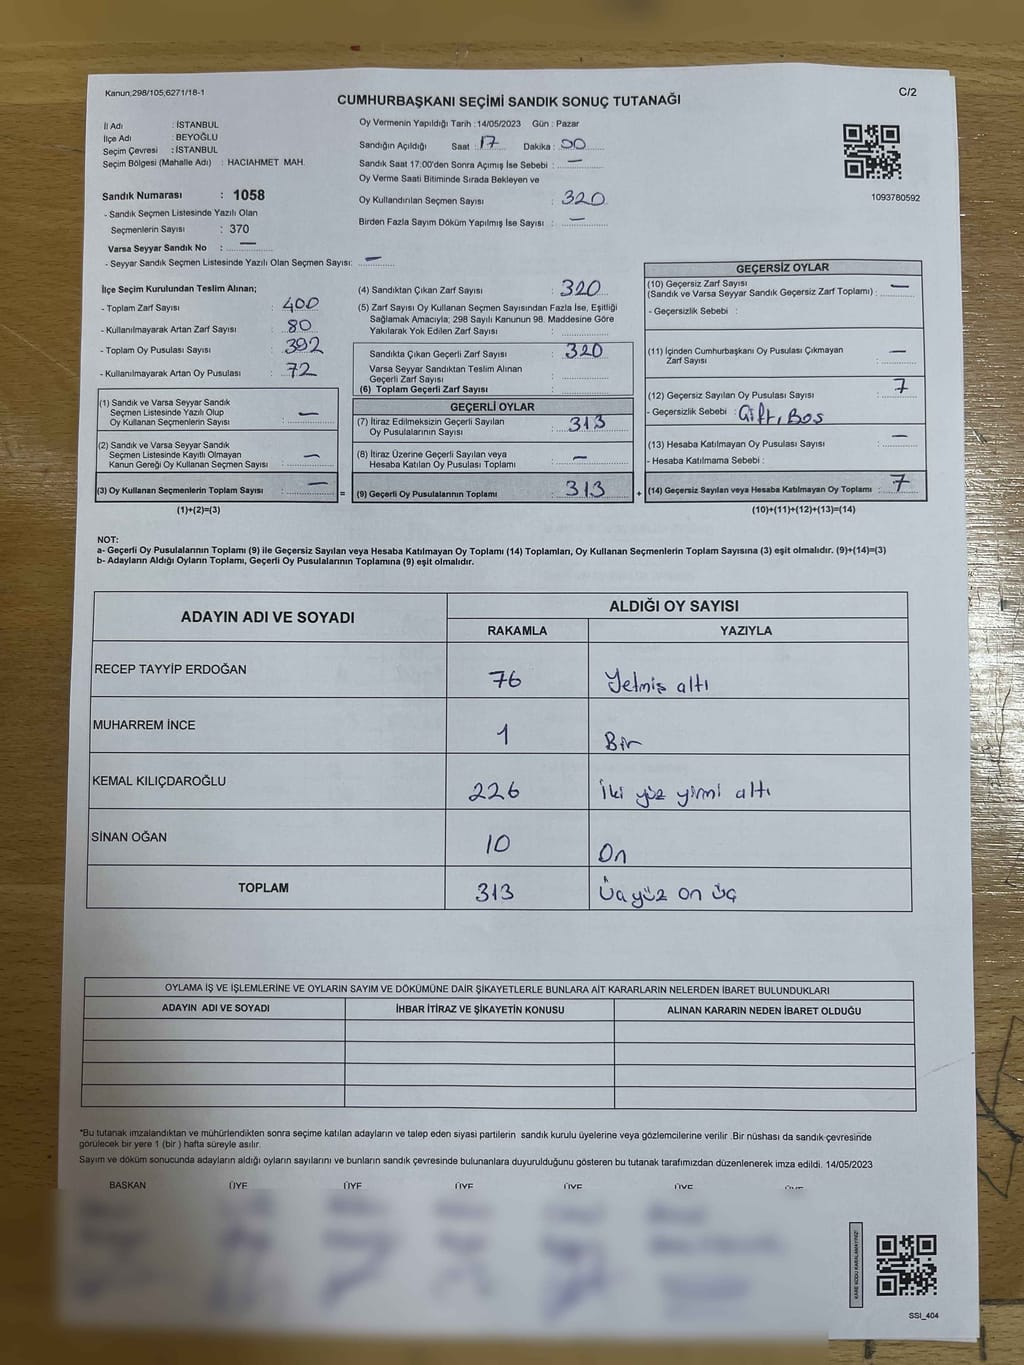 Kanun;298/105,6271/18-1
C/2
CUMHURBAŞKANI SEÇİMİ SANDIK SONUÇ TUTANAĞI
İl Adı : İSTANBUL
İlçe Adı : BEYOĞLU
Seçim Çevresi : İSTANBUL
Seçim Bölgesi (Mahalle Adı) : HACIAHMET MAH.
Sandık Numarası : 1058
- Sandık Seçmen Listesinde Yazılı Olan
Seçmenlerin Sayısı : 370
Varsa Seyyar Sandık No : —
- Seyyar Sandık Seçmen Listesinde Yazılı Olan Seçmen Sayısı: —
Oy Vermenin Yapıldığı Tarih :14/05/2023 Gün : Pazar
Sandığın Açıldığı Saat : 17 Dakika : 00
Sandık Saat 17:00'den Sonra Açımış İse Sebebi : —
Oy Verme Saati Bitiminde Sırada Bekleyen ve
Oy Kullandırılan Seçmen Sayısı : 320
Birden Fazla Sayım Döküm Yapılmış İse Sayısı : —
1093780592
İlçe Seçim Kurulundan Teslim Alınan;
- Toplam Zarf Sayısı : 400
- Kullanılmayarak Artan Zarf Sayısı : 80
- Toplam Oy Pusulası Sayısı : 392
- Kullanılmayarak Artan Oy Pusulası : 72
(1) Sandık ve Varsa Seyyar Sandık
Seçmen Listesinde Yazılı Olup
Oy Kullanan Seçmenlerin Sayısı : —
(2) Sandık ve Varsa Seyyar Sandık
Seçmen Listesinde Kayıtlı Olmayan
Kanun Gereği Oy Kullanan Seçmen Sayısı : —
(3) Oy Kullanan Seçmenlerin Toplam Sayısı : —
(1)+(2)=(3)
(4) Sandıktan Çıkan Zarf Sayısı : 320
(5) Zarf Sayısı Oy Kullanan Seçmen Sayısından Fazla İse, Eşitliği
Sağlamak Amacıyla; 298 Sayılı Kanunun 98. Maddesine Göre
Yakılarak Yok Edilen Zarf Sayısı :
Sandıkta Çıkan Geçerli Zarf Sayısı : 320
Varsa Seyyar Sandıktan Teslim Alınan
Geçerli Zarf Sayısı :
(6) Toplam Geçerli Zarf Sayısı
GEÇERLİ OYLAR
(7) İtiraz Edilmeksizin Geçerli Sayılan
Oy Pusulalarının Sayısı : 313
(8) İtiraz Üzerine Geçerli Sayılan veya
Hesaba Katılan Oy Pusulası Toplamı : —
= (9) Geçerli Oy Pusulalarının Toplamı : 313 +
GEÇERSİZ OYLAR
(10) Geçersiz Zarf Sayısı
(Sandık ve Varsa Seyyar Sandık Geçersiz Zarf Toplamı) : —
- Geçersizlik Sebebi :
(11) İçinden Cumhurbaşkanı Oy Pusulası Çıkmayan
Zarf Sayısı : —
(12) Geçersiz Sayılan Oy Pusulası Sayısı : 7
- Geçersizlik Sebebi : Çift, Boş
(13) Hesaba Katılmayan Oy Pusulası Sayısı : —
- Hesaba Katılmama Sebebi :
(14) Geçersiz Sayılan veya Hesaba Katılmayan Oy Toplamı : 7
(10)+(11)+(12)+(13)=(14)
NOT:
a- Geçerli Oy Pusulalarının Toplamı (9) ile Geçersiz Sayılan veya Hesaba Katılmayan Oy Toplamı (14) Toplamları, Oy Kullanan Seçmenlerin Toplam Sayısına (3) eşit olmalıdır. (9)+(14)=(3)
b- Adayların Aldığı Oyların Toplamı, Geçerli Oy Pusulalarının Toplamına (9) eşit olmalıdır.
ADAYIN ADI VE SOYADI
ALDIĞI OY SAYISI
RAKAMLA YAZIYLA
RECEP TAYYİP ERDOĞAN 76 Yetmiş altı
MUHARREM İNCE 1 Bir
KEMAL KILIÇDAROĞLU 226 İki yüz yirmi altı
SİNAN OĞAN 10 On
TOPLAM 313 Üçyüz on üç
OYLAMA İŞ VE İŞLEMLERİNE VE OYLARIN SAYIM VE DÖKÜMÜNE DAİR ŞİKAYETLERLE BUNLARA AİT KARARLARIN NELERDEN İBARET BULUNDUKLARI
ADAYIN ADI VE SOYADI İHBAR İTİRAZ VE ŞİKAYETİN KONUSU ALINAN KARARIN NEDEN İBARET OLDUĞU
*Bu tutanak imzalandıktan ve mühürlendikten sonra seçime katılan adayların ve talep eden siyasi partilerin sandık kurulu üyelerine veya gözlemcilerine verilir .Bir nüshası da sandık çevresinde
görülecek bir yere 1 (bir ) hafta süreyle asılır.
Sayım ve döküm sonucunda adayların aldığı oyların sayılarını ve bunların sandık çevresinde bulunanlara duyurulduğunu gösteren bu tutanak tarafımızdan düzenlenerek imza edildi. 14/05/2023
BAŞKAN ÜYE ÜYE ÜYE ÜYE ÜYE ÜYE
KARE KODU KARALAMAYINIZ!
SSI_404